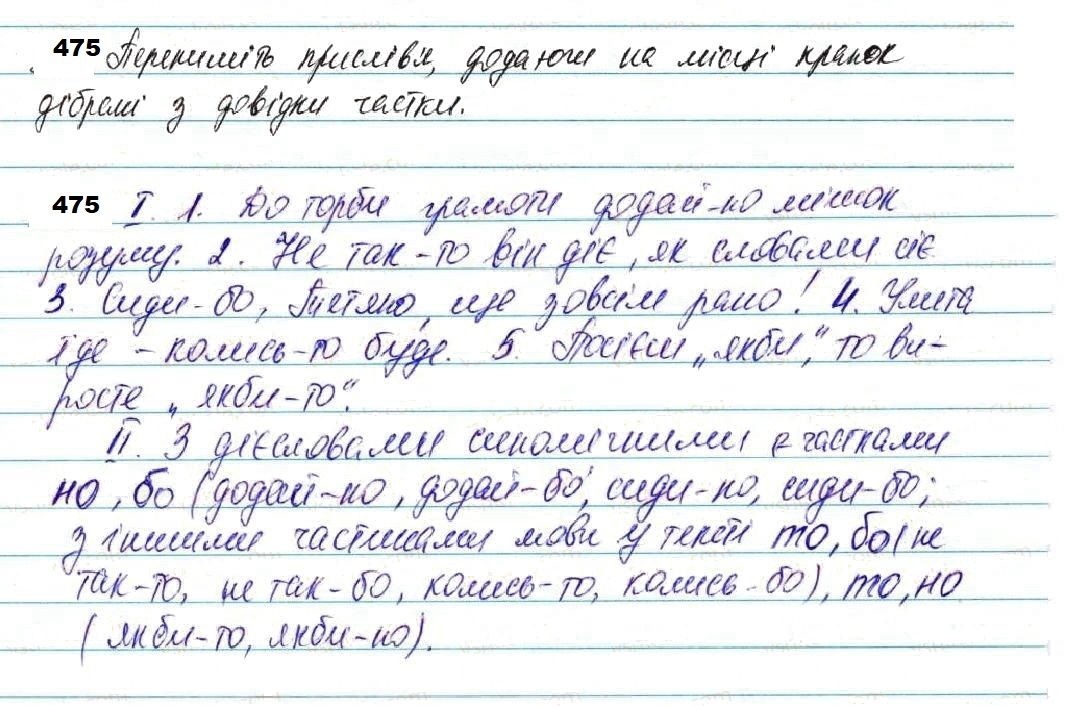 475 Перепишіть прислів'я, додаючи на місці крапок
дібрані з довідки частки.
475 I. 1. До торби грамоти додай-но мішок
розуму. 2. Не так-то він діє, як словами сіє
3. Сиди-бо, Тетяно, ще зовсім рано! 4. Умита
іде - колись-то буде. 5. Посієш „якби“, то ви-
росте „якби-то“.
II. З дієсловами синонімічними є частками
но, бо (додай-но, додай-бо, сиди-но, сиди-бо;
з іншими частинами мови у тексті то, бо (не
так-то, не так-бо, колись-то, колись-бо), то, но
(якби-то, якби-но).